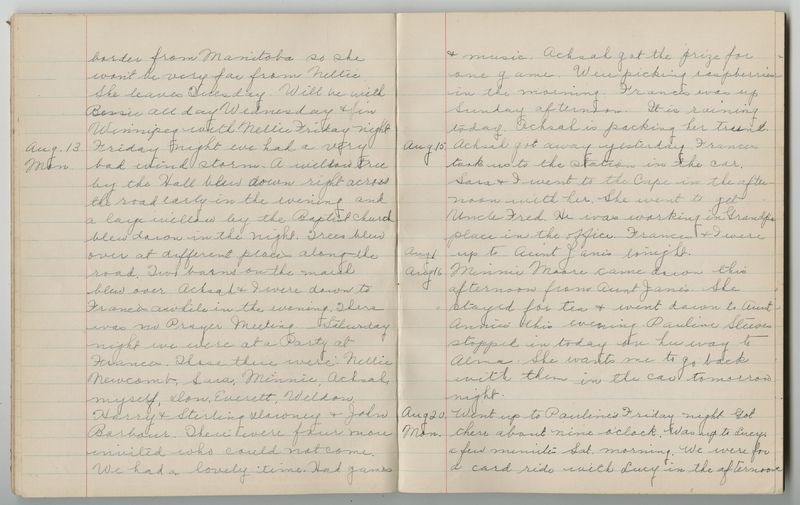 border from Manitoba so she
won't be very far from Nellie
She leaves Tuesday. Will be with
Bessie all day Wednesday & in
Winnipeg with Nellie Friday night
Aug. 13 Friday night we had a very
Mon. bad wind storm. A willow tree
by the Hall blew down right across
the road early in the evening and
a large willow by the Baptist church
blew down in the night. Trees blew
over at different places along the
road. Two barns on the marsh
blew over Achsah & I were down to
Frances awhile in the evening. There
was no Prayer Meeting. Saturday
night we were at a Party at
Frances. Those there were: Nellie
Newcomb, Sara, Minnie, Achsah,
myself, Don, Everett, Weldon,
Harry & Sterling & John
Barbour. There were four more
invited who could not come.
We had a lovely time. Had games
& music. Achsah got the prize for
one game. Were picking raspberries
in the morning. Frances was up
Sunday afternoon. It is raining
today. Achsah is packing her trunk.
Aug 15 Achsah got away yesterday Frances
took us to the station in the car.
Sara & I went to the Cape in the after-
noon with her. She went to get
Uncle Fred. He was working in Grandpa
place in the office. Frances & I were
Aug 1 up to Aunt Janes tonight.
Aug 16 Minnie Moore came down this
afternoon from Aunt Janes. She
stayed for tea & went down to Aunt
Annies this evening. Pauline Steeves
stopped in today on her way to
Alma. She wants me to go back
with them in the car tomorrow
night.
Aug 20. Went up to Pauline's Friday night Got
Mon. there about nine o'clock. Was up to Lucys
a few minutes Sat. morning. We were for
a card ride with Lucy in the afternoon